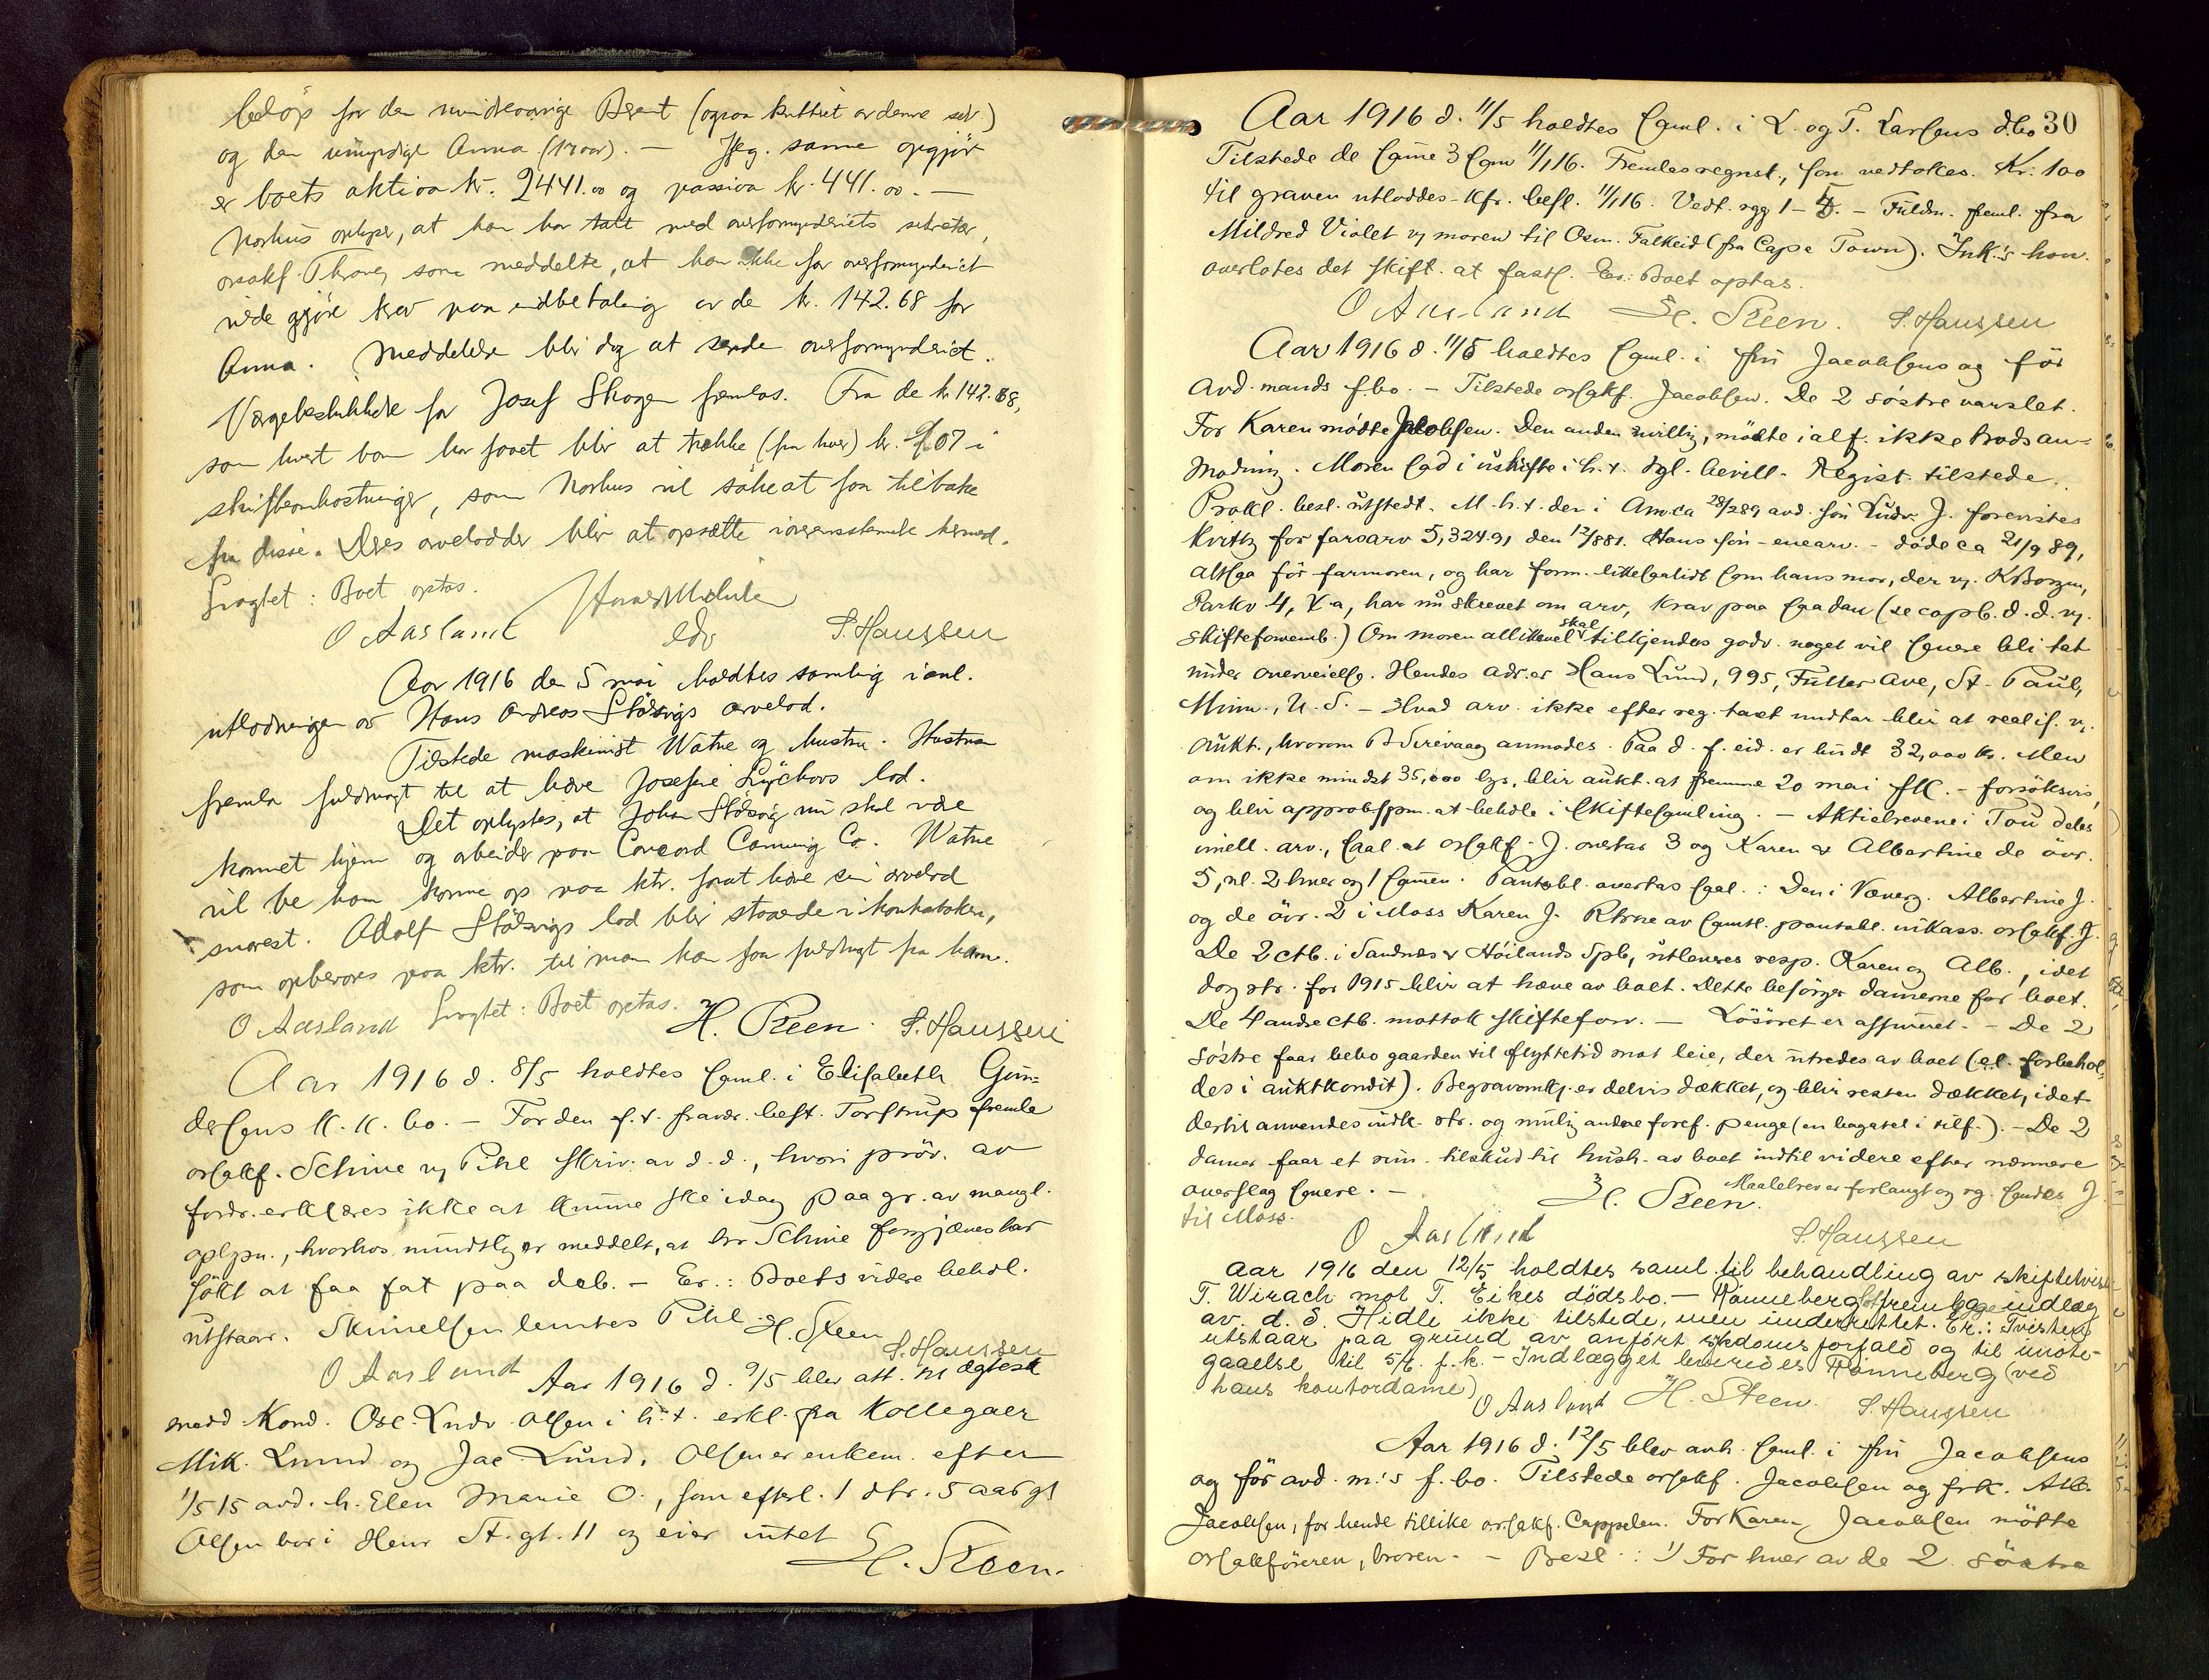 beløp for den mindreaarige Berent (ogsaa kvittert av denne selv)
og den umyndige Anna (17 aar). — Ifølg. samme opgjør
er boets aktiva kr. 2441.00 og passiva kr. 441.00. —
Norhus oplyser, at han har talt med overformynderiets sekretær,
orsakf. Thorey, som meddelte, at han ikke for overformynderiet
vilde gjøre krav paa indbetaling av de kr. 142.68 for
Anna. Meddelelse blir dog at sende overformynderiet.
Værgebeskikkelse for Josef Skogen fremlas. Fra de kr 142.68,
som hvert barn har faaet blir at trække (fra hver) kr. 07 i
skifteomkostninger, som Norhus vil søke at faa tilbake
fra disse. Deres arvelodder blir at opsætte i overensstemmelse hermed.
Sluttet: Boet optas.
O Aasland S. Hanssen
Aar 1916 den 5 mai holdtes samling i anl.
utlodningen av Hans Andreas Stølsvigs arvelod.
Tilstede maskinist Watne og hustru. Hustruen
fremla fuldmagt til at hæve Josefine Lyckovs lod.
Det oplystes, at Johan Stølsvig nu skal være
kommet hjem og arbeider paa Concord Canning Co. Watne
vil be ham komme op paa ktr. forat hæve sin arvelod
snarest. Adolf Stølsvigs lod blir staaende i kontraboken,
som opbevares paa ktr. til man kan faa fuldmagt fra ham.
O Aasland Sluttet: Boet optas. H. Steen. S. Hanssen
Aar 1916 d. 8/5 holdtes saml. i Elisabeth Gun-
dersens k.k. bo. — For den f.t. fravær. best. Torstrup fremla
orsakf. Schine v/ Pihl skriv. av d.d., hvori prøv. av
fordr. erklæres ikke at kunne ske idag paa gr. av mangl.
oplysn., hvorhos mundtlig er meddelt, at hr Schine forgjæves har
søkt at faa fat paa deb. — Er.: Boets videre behdl.
utstaar. Skrivelsen leveres Pihl H. Steen S. Hanssen
O Aasland Aar 1916 d. 9/5 blev att. m ægtesk
med Kond. Osc. Ludv Olsen i h.t. erkl. fra Kollegaer
Mik. Lund og Jac Lund. Olsen er enkem. efter
1/5 15 avd. h. Elen Marie O., som efterl. 1 dtr. 5 aar gl
Olsen bor i Henr St. gt. 11 og eier intet
H. Steen.
30
Aar 1916 d. 11/5 holdtes saml. i L. og T. Larsens d.bo
Tilstede de samme 3 som 11/1 16. Fremlas regnsk., som vedtokes. Kr. 100
til graven utloddes — kfr. besl. 11/1 16. Vedt. rgg 1 — 5. — Fuldm. freml. fra
Mildred Violet v/ moren til Osm. Falkeid (fra Cape Town). Ink.'s hon.
overlotes det skift. at fasts. Er.: Boet optas.
O Aasland H. Steen. S. Hanssen
Aar 1916 d. 11/5 holdtes saml. i fru Jacobsens og før
avd. mands f.bo. — Tilstede orsakf. Jacobsen. De 2 søstre varslet.
For Karen mødte Jacobsen. Den anden uvillig, mødte ialf. ikke trods an-
modning. Moren sad i uskifte i h.t. kgl. bevill. Regist. tilstede.
Prokl. besl. utstedt. M.h.t. den i Amca 28/2 89 avd. søn Ludv. J. forevistes
kvittg for farsarv 5,324.91 den 12/8 81. Hans søn — enearv. — døde ca 21/9 89,
altsaa før farmoren, og har form. likesaalidt som hans mor, der v/ K Borgen,
Parkv 4, X.a, har nu skrevet om arv, krav paa saadan (se copb. d.d. v/
skifteforvemb.) Om moren allikevel skal tilkjendes godv. noget vil senere bli tat
under overveielse. Hendes adr. er Hans Lund, 995, Fuller Ave, St. Paul,
Minn., U.S. — Hvad arv. ikke efter reg. takst undtar blir at realis. v/
aukt., hvorom B Sirevaag anmodes. Paa d. f. eid. er budt 32,000 kr. Men
om ikke mindst 35,000 bys, blir aukt. at fremme 20 mai fk. — forsøksvis,
og blir approb.spm. at behdle i skiftesamling. — Aktiebrevene i Tou deles
imell. arv., saal. at orsakf. J. overtar 3 og Karen & Albertine de øvr.
5, nl. 2 hver og 1 sammen. Pantobl. overtas saal.: Den i Væverg. Albertine J.
og de øvr. 2 i Moss Karen J. Rtrne av samtl. pantobl. inkass. orsakf. J.
De 2 ctb. i Sandnes & Høilands Spb, utleveres resp. Karen og Alb., idet
dog rtr. for 1915 blir at hæve av boet. Dette besørger damerne for boet.
De 4 andre ctb. mottok skifteforv. — Løsøret er assureret. — De 2
søstre faar bebo gaarden til flyttetid mot leie, der utredes av boet (el. forbehol-
des i auktkondit). Begravomk. er delvis dækket, og blir resten dækket, idet
dertil anvendes indk. rtr. og mulig andre foref. penge (en bagatel i tilf.). — De 2
damer faar et rim. tilskud til hush. av boet indtil videre efter nærmere
overslag senere. — Maalebrev er forlangt og og. sendes J.
til Moss. H. Steen.
O Aasland S. Hanssen
Aar 1916 den 12/5 holdtes saml. til behandling av skiftetvist
T. Wirach mot T. Eikes dødsbo. — Rønneberg lot fremlegge indlæg
av d. d. Hidle ikke tilstede, men underrettet. Er.: Tvisten
utstaar paa grund av anført sykdomsforfald og til imøte-
gaaelse til 5/6 f.k. — Indlægget leveredes Rønneberg (ved
hans kontordame) O Aasland H. Steen. S. Hanssen
Aar 1916 d. 12/5 blev avh. saml. i fru Jacobsens
og før avd. m.'s f. bo. Tilstede orsakf. Jacobsen og frk. Alb.
Jacobsen, for hende tillike orsakf. Cappelen. For Karen Jacobsen møtte
orsakføreren, broren. — Besl.: 1) For hver av de 2 søstre